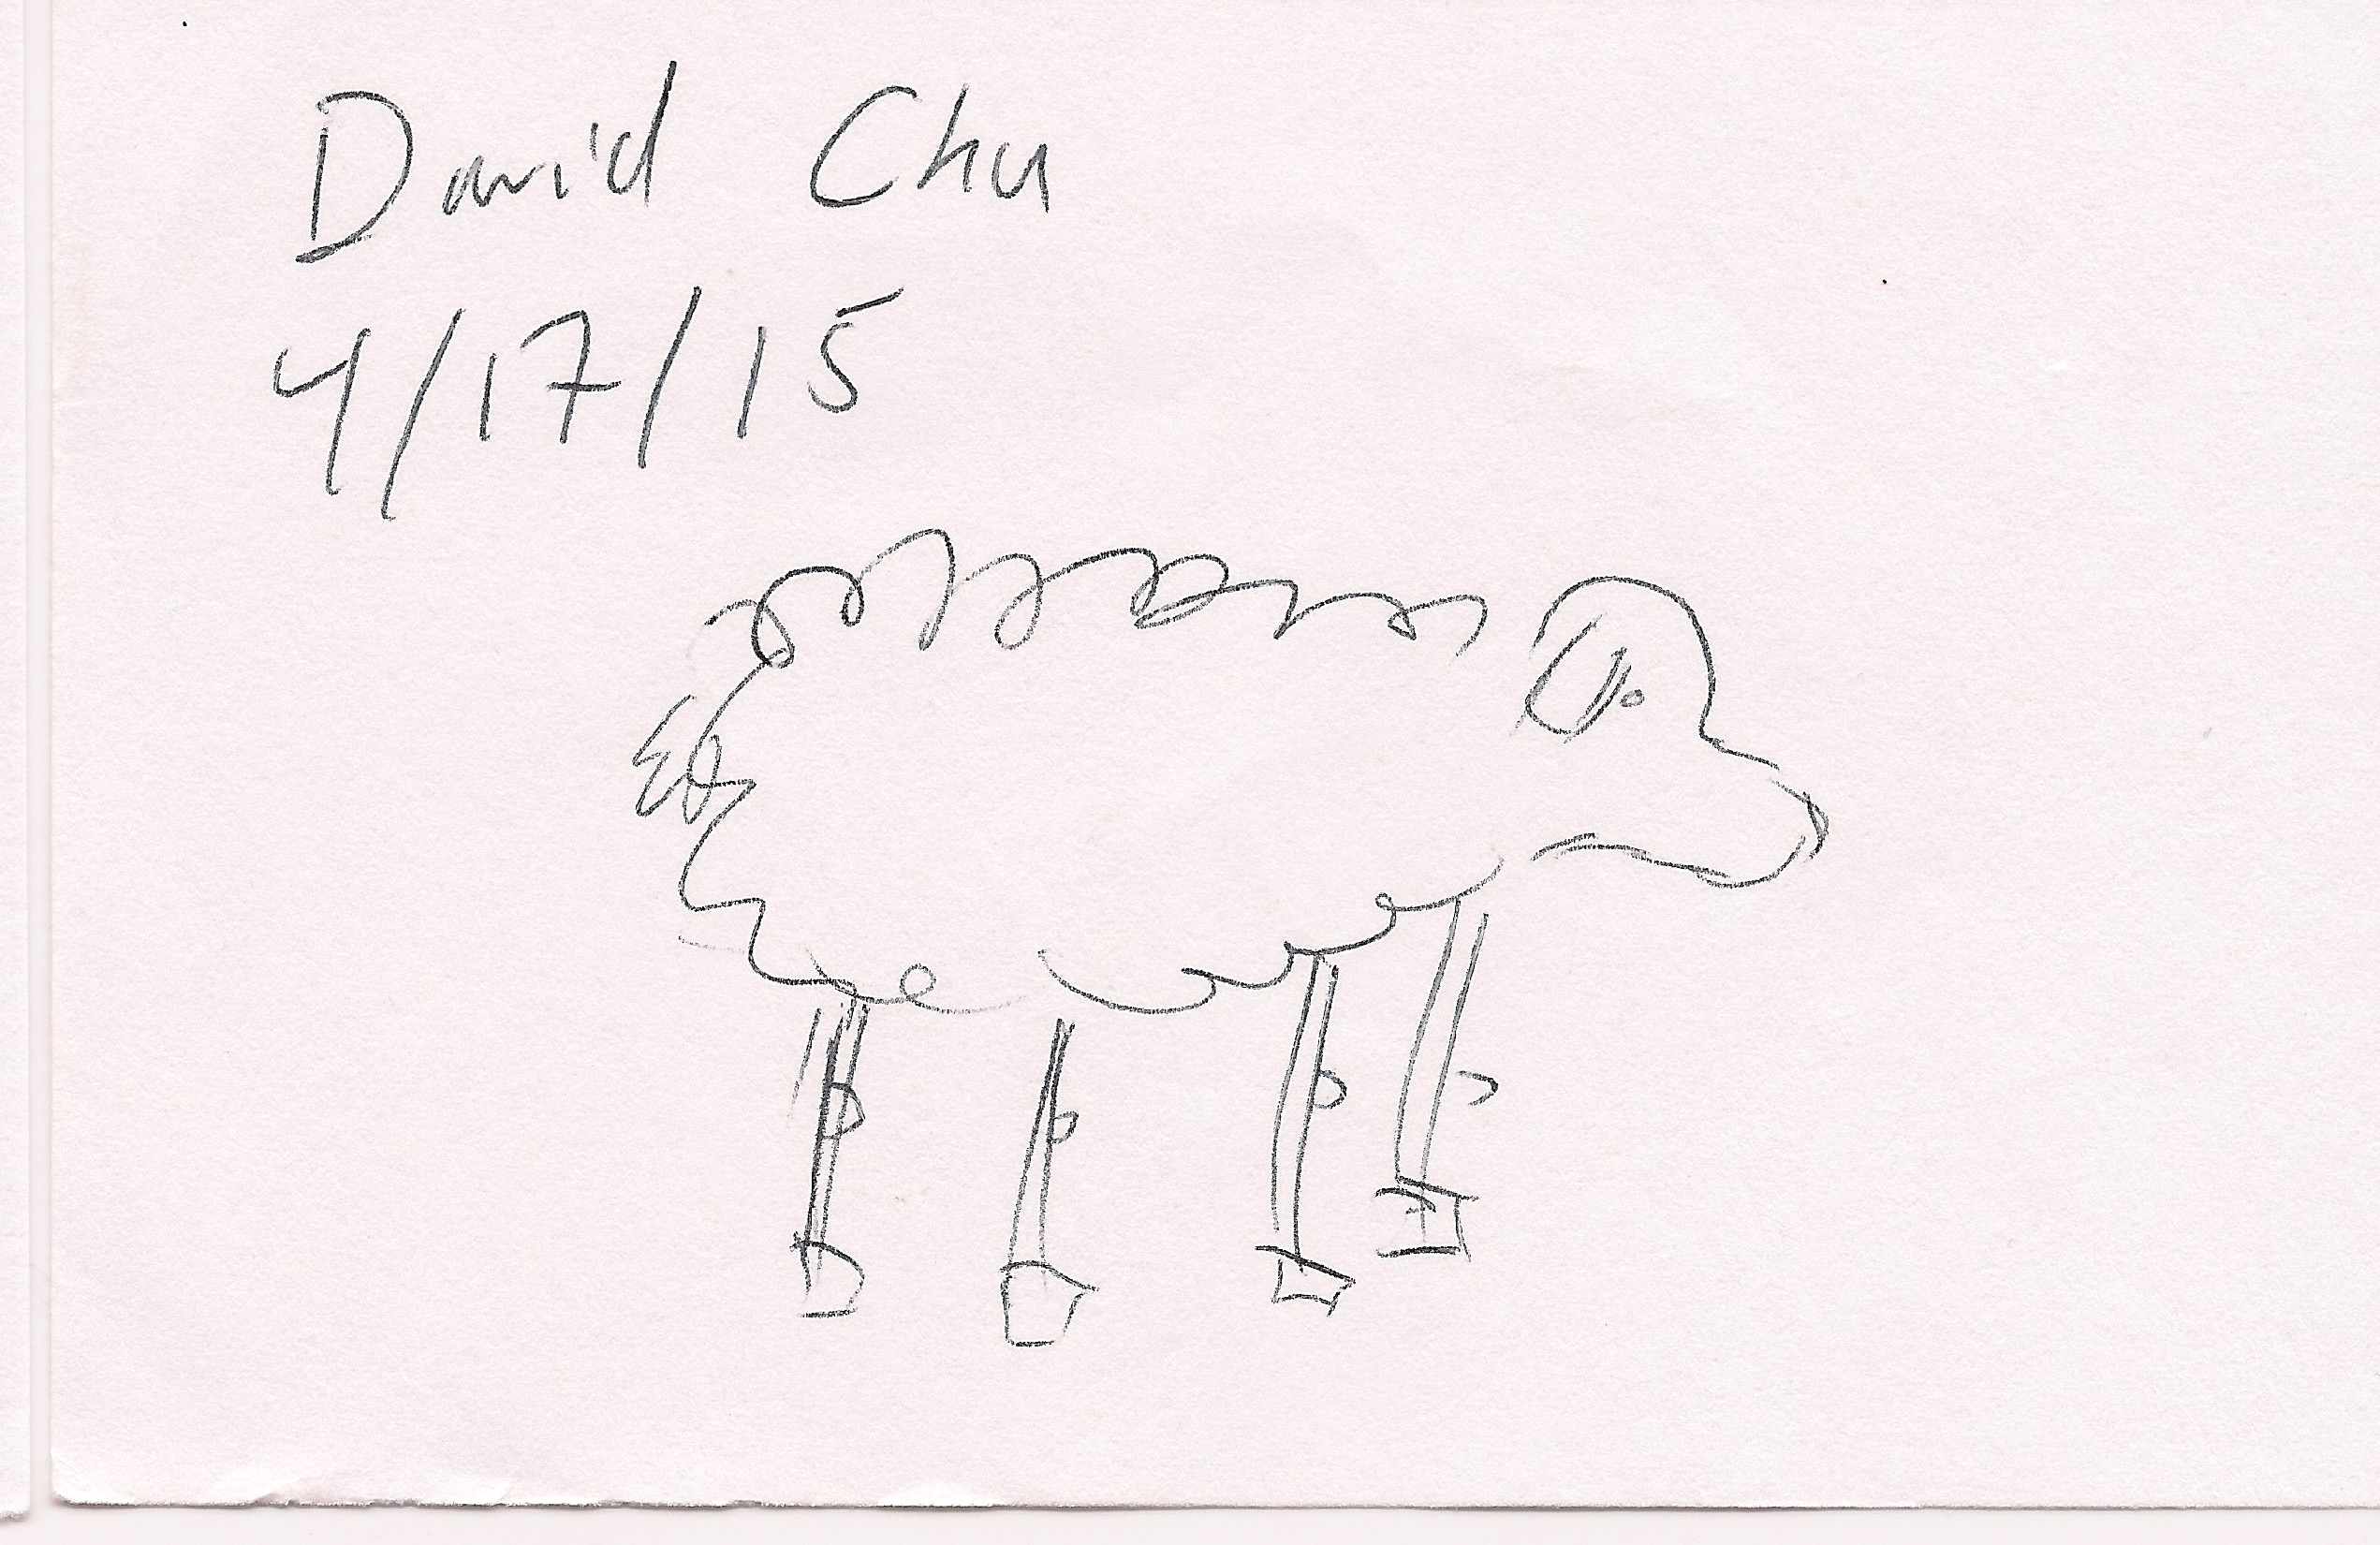 David Chu
4/17/15